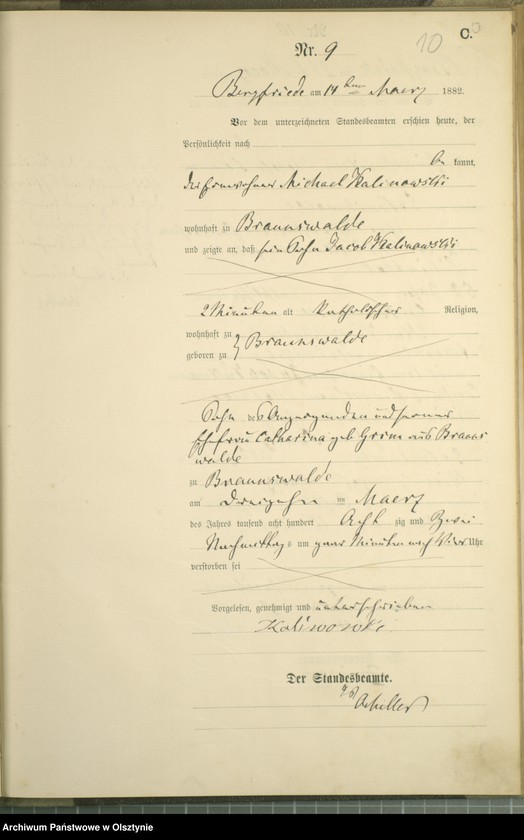 C.
10
Nr. 9
Bergfriede am 14ten Maerz 1882.
Vor dem unterzeichneten Standesbeamten erschien heute, der
Persönlichkeit nach
be kannt,
der Einwohner Michael Kalinowski
wohnhaft zu Braunswalde
und zeigte an, daß sein Sohn Jacob Kalinowski
2 Minuten alt katholischer Religion,
wohnhaft zu
geboren zu } Braunswalde
Sohn des Anzeigenden und seiner
Ehefrau Catharina geb Grim aus Brauns
walde
zu Braunswalde
am dreizehn im Maerz
des Jahres tausend acht hundert Acht zig und Zwei
Nachmittags um paar Minuten nach Uhr
verstorben sei
Vorgelesen, genehmigt und unterschrieben
Kalinowski
Der Standesbeamte.
Archiwum Państwowe w Olsztynie